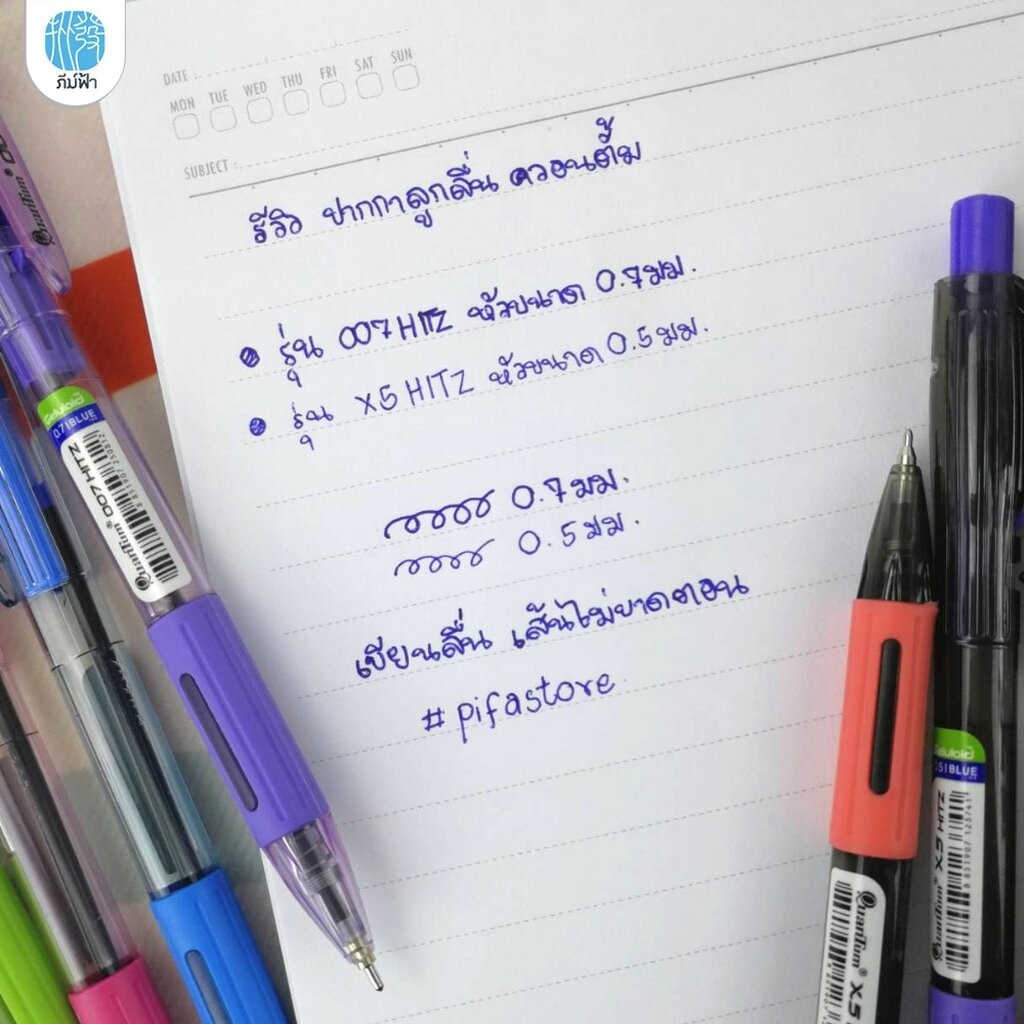 ภีม์ฟ้า
DATE :
MON TUE WED THU FRI SAT SUN
SUBJECT :
รีวิว ปากกาลูกลื่น ควอนตั้ม
รุ่น 007 HITZ หัวขนาด 0.7 มม.
รุ่น X5 HITZ หัวขนาด 0.5 มม.
0.7 มม.
0.5 มม.
เขียนลื่น เส้นไม่ขาดตอน
#pifastore
QuanTum
Geluloid
0.7 | BLUE
QuanTum® 007 HITZ
Geluloid
0.5 | BLUE
QuanTum® X5 HITZ
8 851907 123741
QuanTum® X5